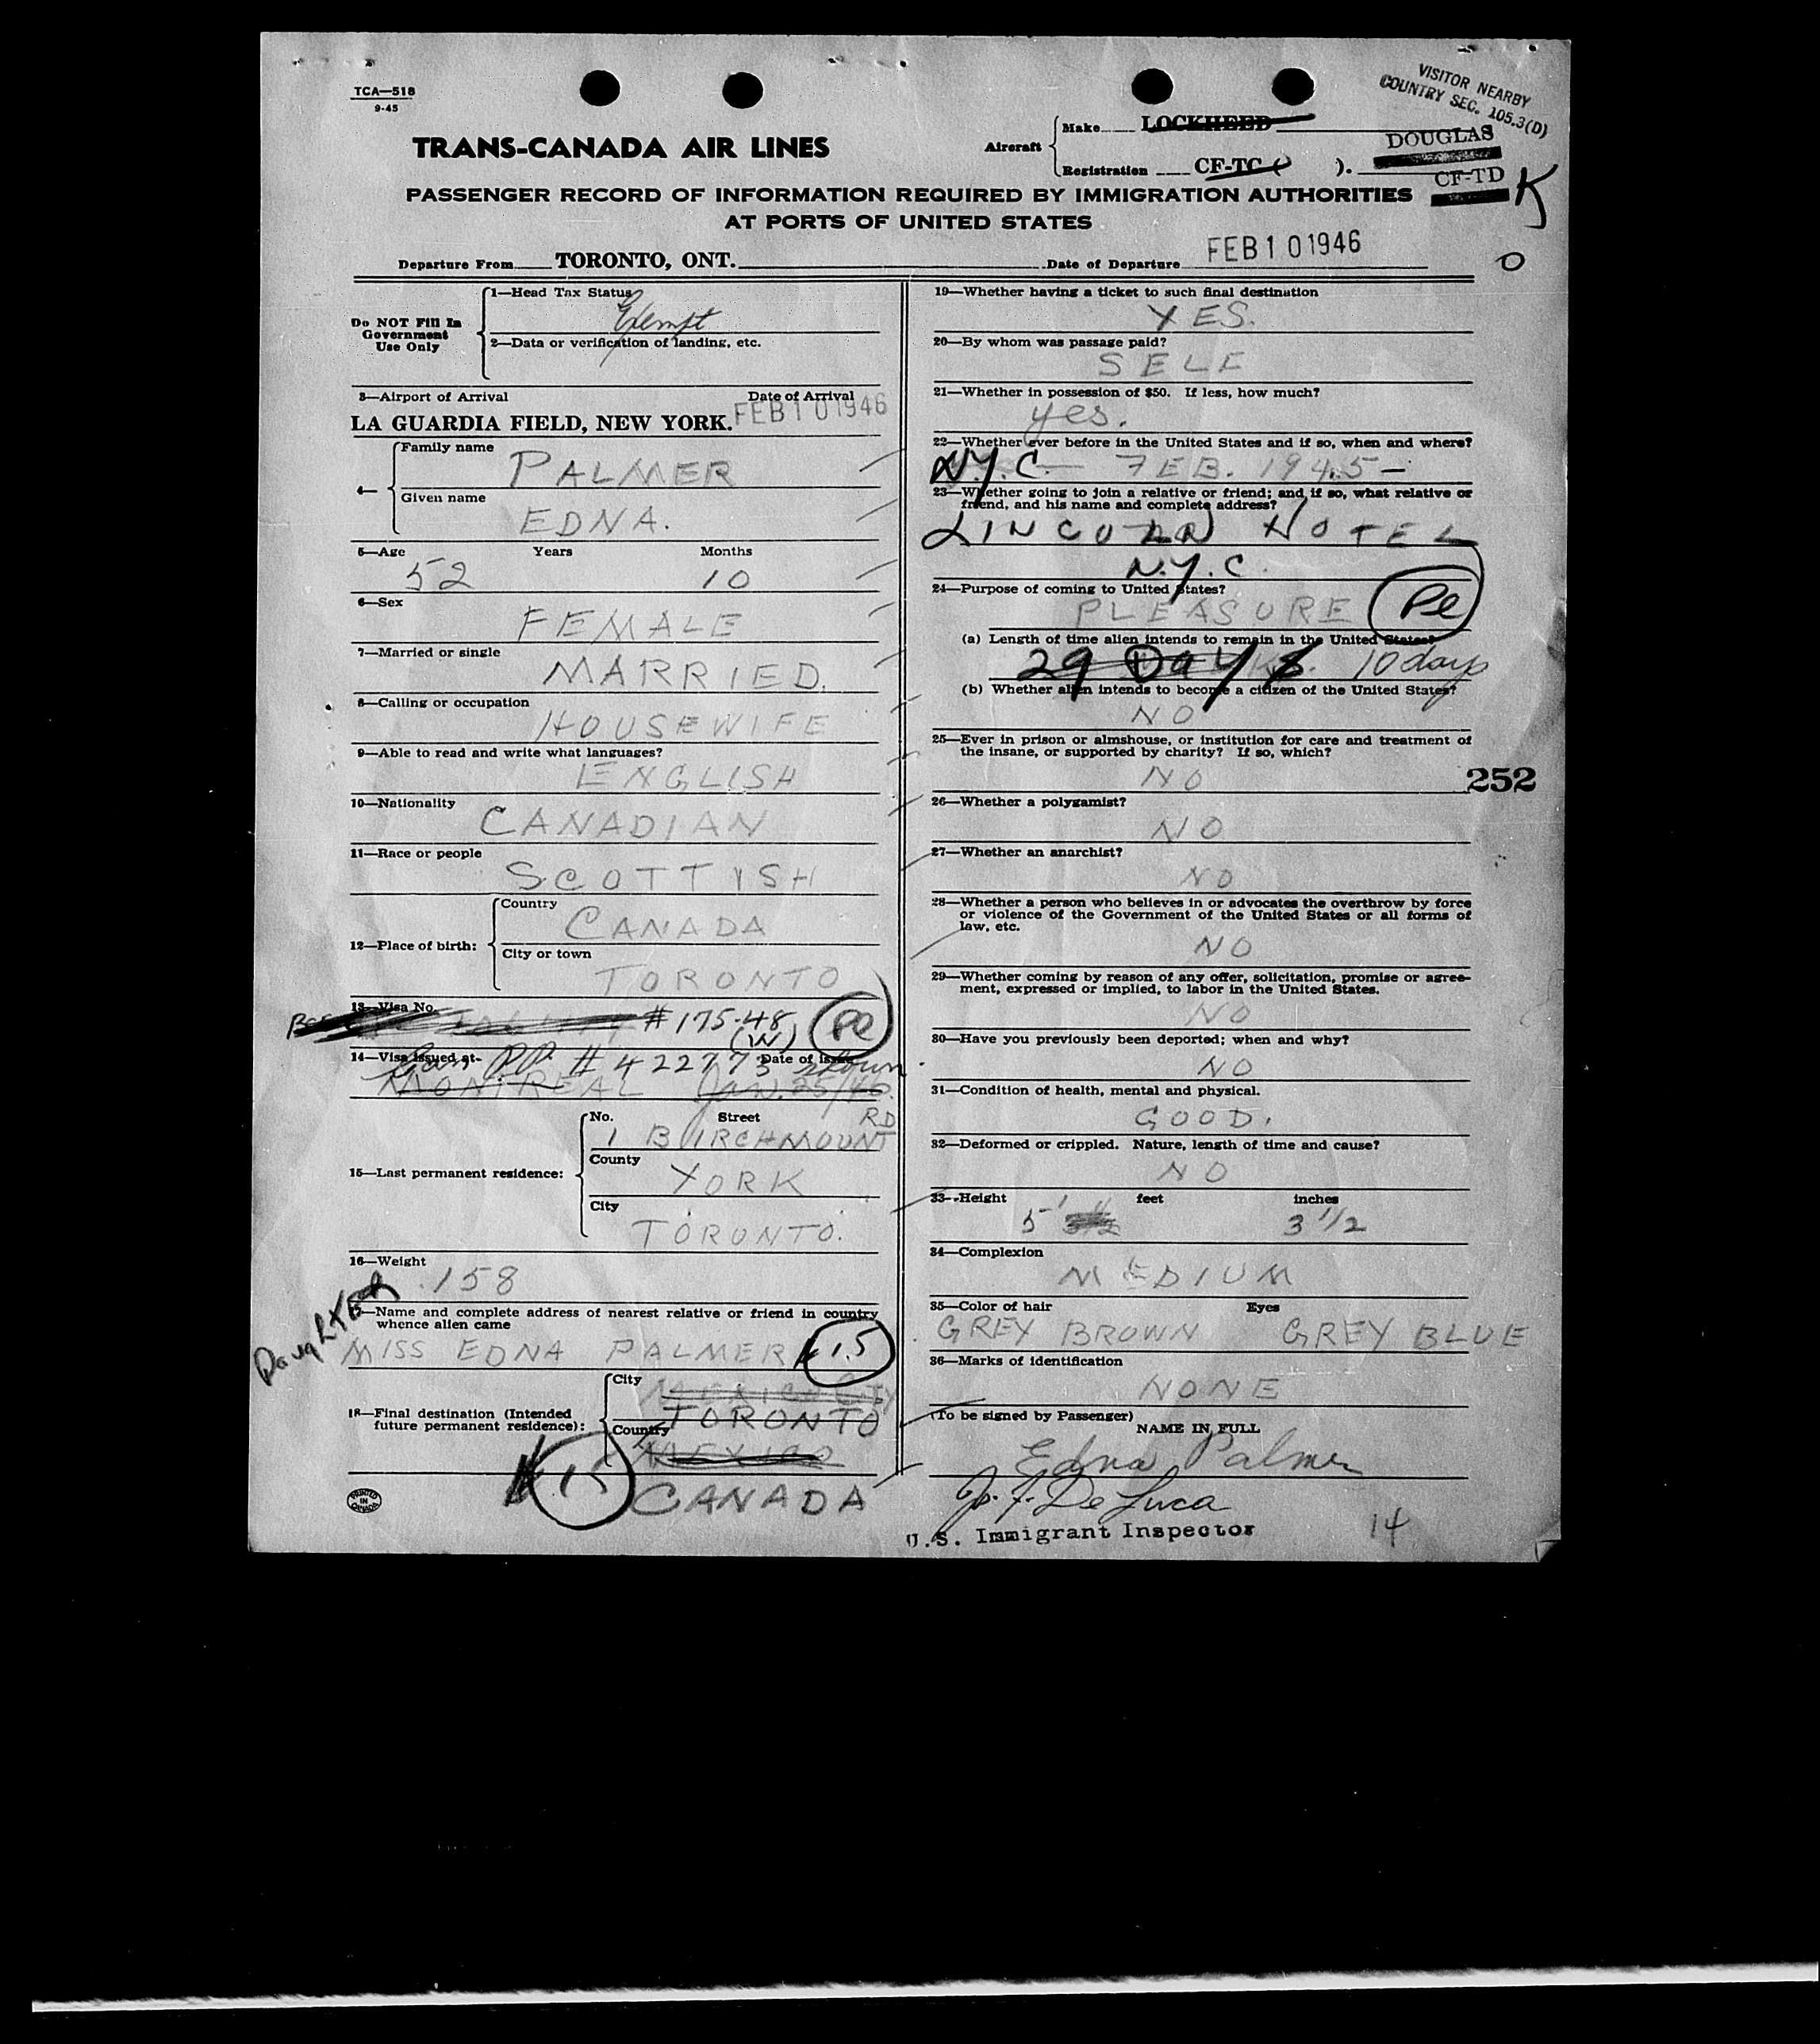 TCA—518
9-45
VISITOR NEARBY
COUNTRY SEC. 105.3(D)
TRANS-CANADA AIR LINES
Aircraft
Make LOCKHEED
DOUGLAS
Registration CF-TC ( ).
CF-TD K
PASSENGER RECORD OF INFORMATION REQUIRED BY IMMIGRATION AUTHORITIES
AT PORTS OF UNITED STATES
Departure From TORONTO, ONT. Date of Departure FEB 10 1946
O
Do NOT Fill In
Government
Use Only
1—Head Tax Status
Exempt
2—Data or verification of landing, etc.
3—Airport of Arrival Date of Arrival
LA GUARDIA FIELD, NEW YORK. FEB 10 1946
4—
Family name
PALMER
Given name
EDNA.
5—Age Years Months
52 10
6—Sex
FEMALE
7—Married or single
MARRIED.
8—Calling or occupation
HOUSEWIFE
9—Able to read and write what languages?
ENGLISH
10—Nationality
CANADIAN
11—Race or people
SCOTTISH
12—Place of birth:
Country
CANADA
City or town
TORONTO
13—Visa No.
# 175.48 (W) Pl
14—Visa issued at- Date of issue
Can PP. # 422773 shown
MONTREAL JAN. 25/46.
15—Last permanent residence:
No. Street RD
1 BIRCHMOUNT
County
YORK
City
TORONTO.
16—Weight
158
Daughter
17—Name and complete address of nearest relative or friend in country
whence alien came
MISS EDNA PALMER # 15
18—Final destination (Intended
future permanent residence):
City
MEXICO CITY
TORONTO
Country
MEXICO
# 15 CANADA
PRINTED
IN
CANADA
19—Whether having a ticket to such final destination
YES.
20—By whom was passage paid?
SELF
21—Whether in possession of $50. If less, how much?
yes.
22—Whether ever before in the United States and if so, when and where?
N.Y.C. — FEB. 1945 —
23—Whether going to join a relative or friend; and if so, what relative or
friend, and his name and complete address?
LINCOLN HOTEL
N.Y.C.
24—Purpose of coming to United States?
PLEASURE Pl
(a) Length of time alien intends to remain in the United States?
29 DAYS 10 days
(b) Whether alien intends to become a citizen of the United States?
NO
25—Ever in prison or almshouse, or institution for care and treatment of
the insane, or supported by charity? If so, which?
NO
252
26—Whether a polygamist?
NO
27—Whether an anarchist?
NO
28—Whether a person who believes in or advocates the overthrow by force
or violence of the Government of the United States or all forms of
law, etc.
NO
29—Whether coming by reason of any offer, solicitation, promise or agree-
ment, expressed or implied, to labor in the United States.
NO
30—Have you previously been deported; when and why?
NO
31—Condition of health, mental and physical.
GOOD.
32—Deformed or crippled. Nature, length of time and cause?
NO
33—Height feet inches
5' 3 1/2
34—Complexion
MEDIUM
35—Color of hair Eyes
GREY BROWN GREY BLUE
36—Marks of identification
NONE
(To be signed by Passenger)
NAME IN FULL
Edna Palmer
J. F. De Luca
U.S. Immigrant Inspector
14